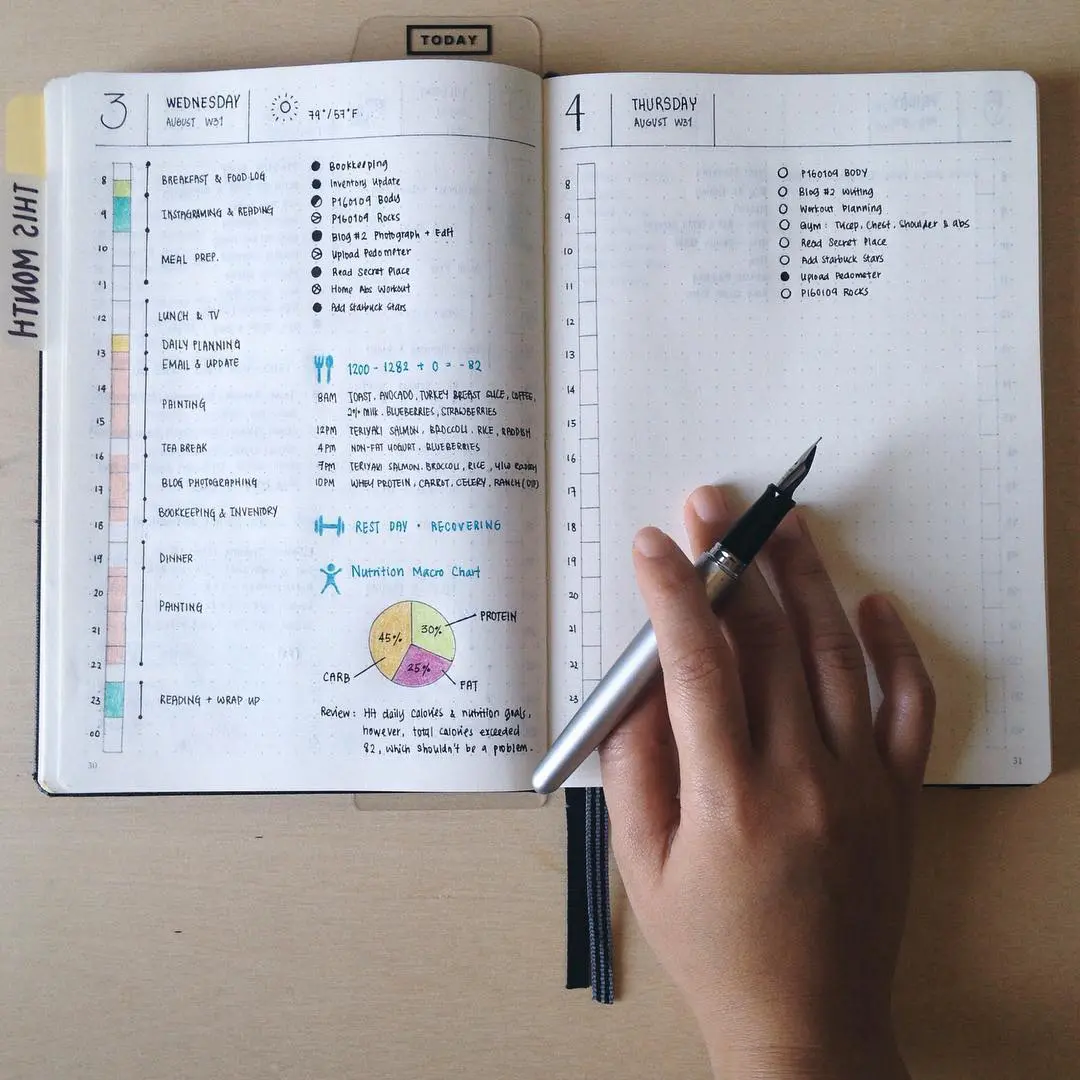 TODAY
THIS MONTH
3
WEDNESDAY
AUGUST W31
79°/57°F
8
9
10
11
12
13
14
15
16
17
18
19
20
21
22
23
00
BREAKFAST & FOOD LOG
INSTAGRAMING & READING
MEAL PREP.
LUNCH & TV
DAILY PLANNING
EMAIL & UPDATE
PAINTING
TEA BREAK
BLOG PHOTOGRAPHING
BOOKKEEPING & INVENTORY
DINNER
PAINTING
READING + WRAP UP
Bookkeeping
Inventory Update
P160109 Body
P160109 Rocks
Blog #2 Photograph + Edit
Upload Pedometer
Read Secret Place
Home Abs Workout
Add Starbuck Stars
1200 - 1282 + 0 = -82
8AM TOAST, AVOCADO, TURKEY BREAST SLICE, COFFEE,
2% milk, BLUEBERRIES, STRAWBERRIES
12PM TERIYAKI SALMON, BROCCOLI, RICE, RADDISH
4PM NON-FAT YOGURT, BLUEBERRIES
7PM TERIYAKI SALMON, BROCCOLI, RICE,
10PM WHEY PROTEIN, CARROT, CELERY, RANCH
REST DAY · RECOVERING
Nutrition Macro Chart
45%
30%
25%
PROTEIN
CARB
FAT
Review: Hit daily calories & nutrition goals,
however, total calories exceeded
82, which shouldn't be a problem.
30
4
THURSDAY
AUGUST W31
8
9
10
11
12
13
14
15
16
17
18
19
20
21
22
23
P160109 BODY
Blog #2 Writing
Workout Planning
Gym: Tricep, Chest, Shoulder & abs
Read Secret Place
Add Starbuck Stars
Upload Pedometer
P160109 ROCKS
31